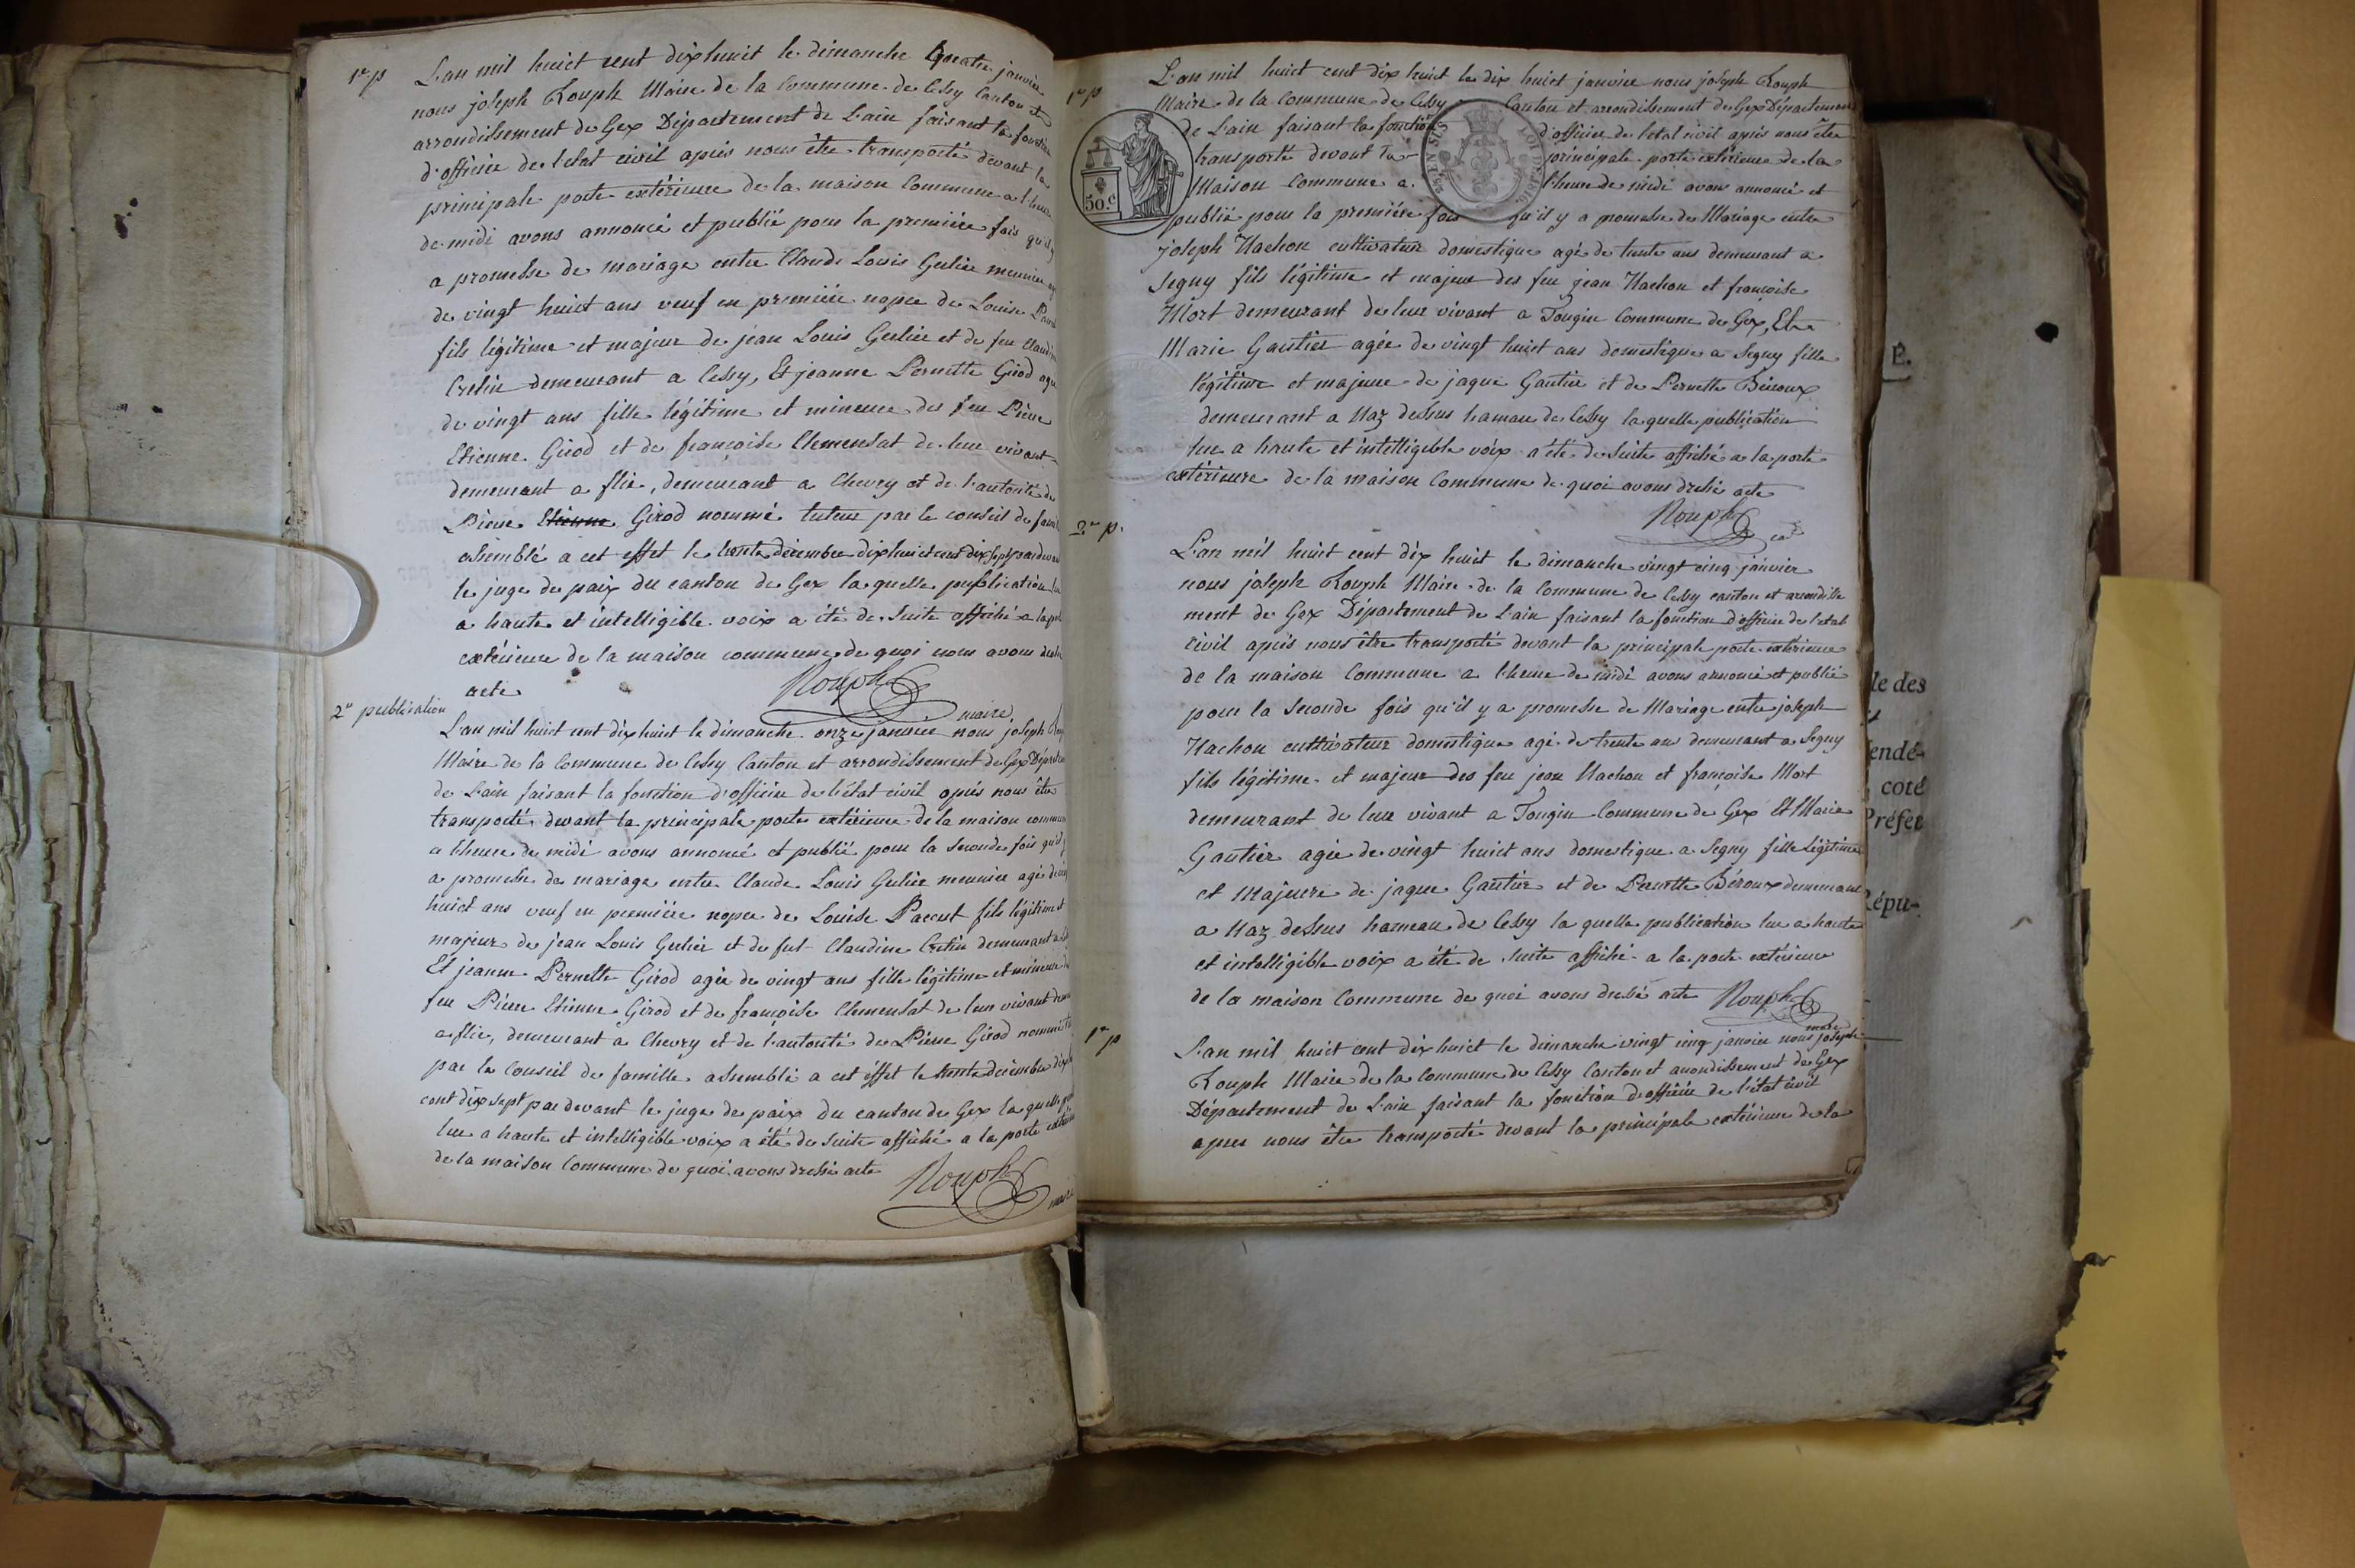 1re p
L'an mil huict cent dix huict le dimanche quatre janvier
nous joseph Rouph Maire de la commune de Cessy Canton et
arrondissement de Gex Département de L'ain faisant la fonction
d'officier de l'etat civil après nous être transporté devant la
principale porte extérieure de la maison Commune a l'heure
de midi avons annoncé et publié pour la première fois qu'il y
a promesse de mariage entre Claude Louis Gerlier meunier
de vingt huict ans veuf en première nopce de Louise
fils légitime et majeur de jean Louis Gerlier et de feu Claudine
Cretin demeurant a Cessy, Et jeanne Pernette Girod agée
de vingt ans fille légitime et mineure des feu Pierre
Etienne Girod et de françoise Clemensat de leur vivant
demeurant a flie, demeurant a Chevry et de l'autorité de
Pierre Etienne Girod nommé tuteur par le conseil de
assemblé a cet effet le trente décembre dix huict cent dix sept pardevant
le juge de paix du canton de Gex la quelle publication lue
a haute et intelligible voix a été de suite affiché a la
extérieure de la maison commune de quoi nous avons
acte
Rouph
maire
2e publication
L'an mil huict cent dix huict le dimanche onze janvier nous joseph
Maire de la Commune de Cessy Canton et arrondissement de Gex
de L'ain faisant la fonction d'officier de l'état civil après nous être
transporté devant la principale porte extérieure de la maison commune
a l'heure de midi avons annoncé et publié pour la seconde fois qu'il y
a promesse de mariage entre Claude Louis Gerlier meunier agé de
huict ans veuf en première nopce de Louise Paccut fils légitime et
majeur de jean Louis Gerlier et de fut Claudine Cretin demeurant a
Et jeanne Pernette Girod agée de vingt ans fille légitime et mineure
feu Pierre Etienne Girod et de françoise Clemensat de leur vivant
a flie, demeurant a Chevry et de l'autorité de Pierre Girod nommé
par le Conseil de famille assemblé a cet éffet le trente décembre
cent dix sept pardevant le juge de paix du canton de Gex la quelle
lue a haute et intelligible voix a été de suite affiché a la porte extérieure
de la maison Commune de quoi avons dressé acte
Rouph
maire
1re p
L'an mil huict cent dix huict le dix huict janvier nous joseph Rouph
Maire de la Commune de Cessy Canton et arrondissement de Gex Département
de L'ain faisant la fonction d'officier de l'etat civil après nous être
transporté devant la principale porte extérieure de la
Maison Commune a l'heure de midi avons annoncé et
publié pour la première fois qu'il y a promesse de Mariage entre
joseph Hachon cultivateur domestique agé de trente ans demeurant a
Segny fils légitime et majeur des feu jean Hachon et françoise
Mort demeurant de leur vivant a Tougin Commune de Gex, Et
Marie Gautier agée de vingt huict ans domestique a Segny fille
légitime et majeure de jaque Gautier et de Pernette Béroux
demeurant a Naz dessus hameau de Cessy la quelle publication
lue a haute et intelligible voix a été de suite affiché a la porte
extérieure de la maison Commune de quoi avons dressé acte
Rouph
50.c
2e p.
L'an mil huict cent dix huict le dimanche vingt cinq janvier
nous joseph Rouph Maire de la Commune de Cessy canton et arrondisse
ment de Gex Département de L'ain faisant la fonction d'officier de l'etat
civil après nous être transporté devant la principale porte extérieure
de la maison Commune a l'heure de midi avons annoncé et publié
pour la Seconde fois qu'il y a promesse de Mariage entre joseph
Hachon cultivateur domestique agé de trente ans demeurant a Segny
fils légitime et majeur des feu jean Hachon et françoise Mort
demeurant de leur vivant a Tougin Commune de Gex Et Marie
Gautier agée de vingt huict ans domestique a Segny fille Légitime
et Majeure de jaque Gautier et de Pernette Béroux demeurant
a Naz dessus hameau de Cessy la quelle publication lue a haute
et intelligible voix a été de suite affiché a la porte extérieure
de la maison Commune de quoi avons dressé acte Rouph
maire
1re p
L'an mil huict cent dix huict le dimanche vingt cinq janvier nous joseph
Rouph Maire de la Commune de Cessy Canton et arrondissement de Gex
Département de L'ain faisant la fonction d'officier de l'état civil
apres nous être transporté devant la principale extérieure de la
E.
le des
endé-
coté
Préfet
Répu-